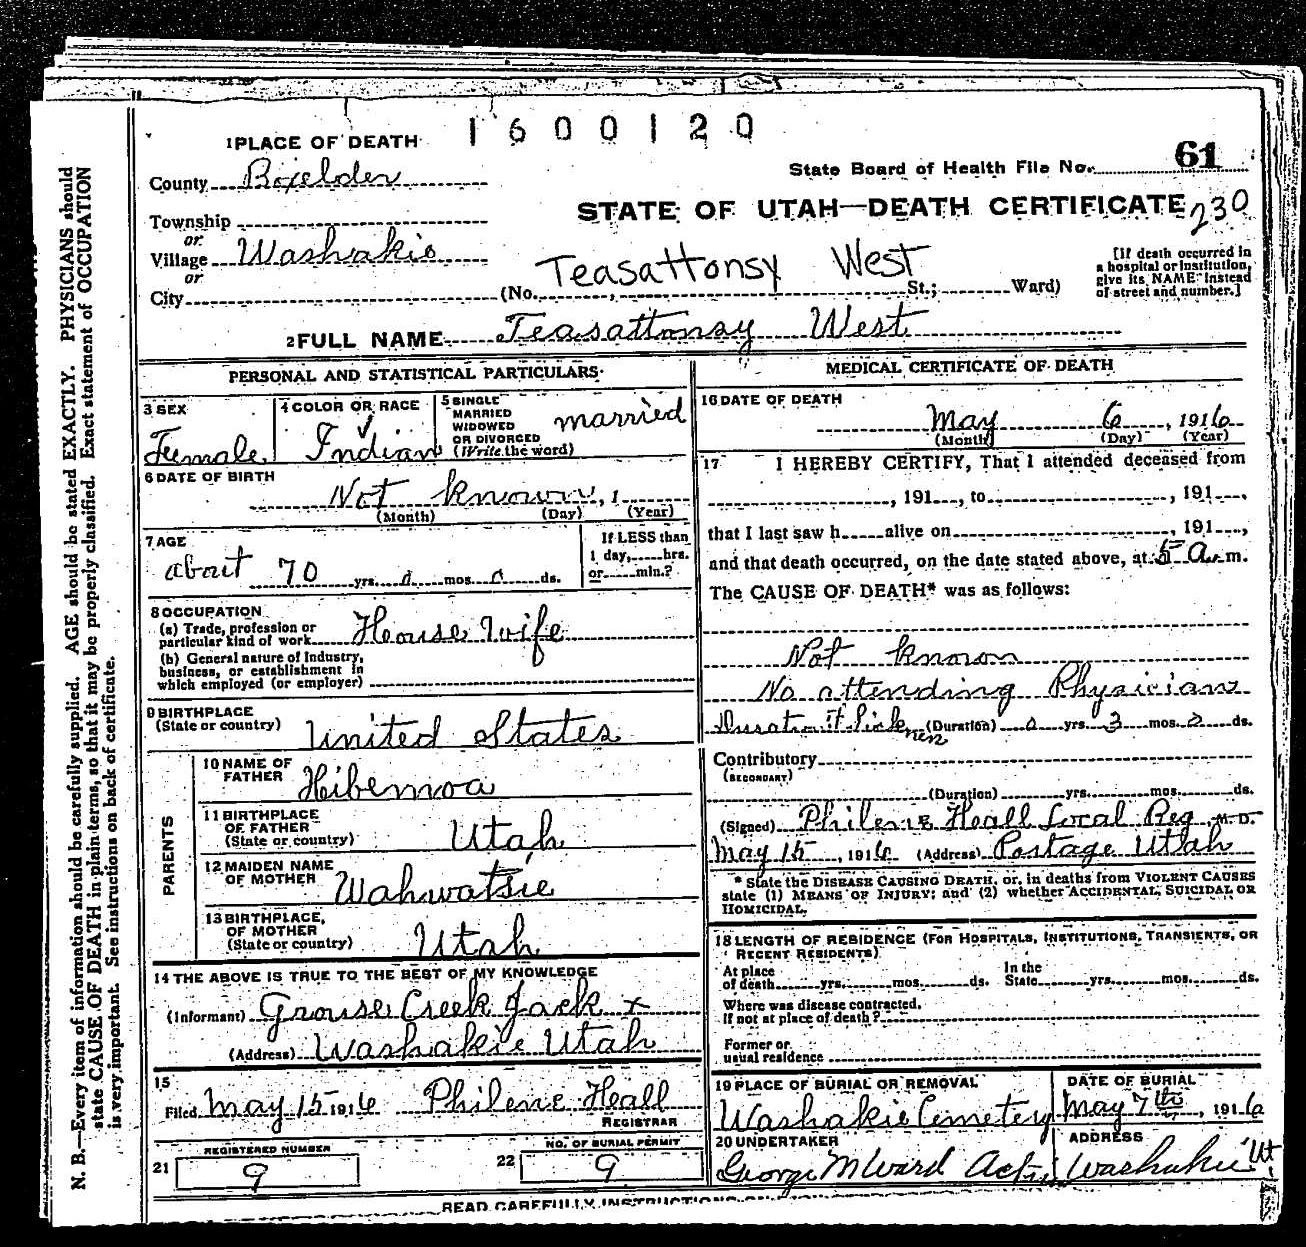 1600120
1 PLACE OF DEATH
State Board of Health File No. 61
County Boxelder
STATE OF UTAH—DEATH CERTIFICATE 230
Township
or
Village Washakie
or
City
Teasattonsy West
(No. , St.; Ward)
[If death occurred in
a hospital or institution,
give its NAME instead
of street and number.]
2 FULL NAME Teasattonsy West
PERSONAL AND STATISTICAL PARTICULARS
3 SEX
Female
4 COLOR OR RACE
Indian
5 SINGLE
MARRIED
WIDOWED
OR DIVORCED
(Write the word)
married
6 DATE OF BIRTH
Not known, 1
(Month) (Day) (Year)
7 AGE
about 70 yrs. 0 mos. 0 ds.
If LESS than
1 day, hrs.
or min.?
8 OCCUPATION
(a) Trade, profession or
particular kind of work House Wife
(b) General nature of Industry,
business, or establishment in
which employed (or employer)
9 BIRTHPLACE
(State or country) United States
PARENTS
10 NAME OF
FATHER Hibemoa
11 BIRTHPLACE
OF FATHER
(State or country) Utah
12 MAIDEN NAME
OF MOTHER Wahwatsie
13 BIRTHPLACE,
OF MOTHER
(State or country) Utah
14 THE ABOVE IS TRUE TO THE BEST OF MY KNOWLEDGE
(Informant) Grouse Creek Jack x
(Address) Washakie Utah
15
Filed May 15 1916 Philene Heall
REGISTRAR
REGISTERED NUMBER
21 9
NO. OF BURIAL PERMIT
22 9
MEDICAL CERTIFICATE OF DEATH
16 DATE OF DEATH
May 6, 1916
(Month) (Day) (Year)
17 I HEREBY CERTIFY, That I attended deceased from
, 191 , to , 191 ,
that I last saw h alive on , 191 ,
and that death occurred, on the date stated above, at 5 a. m.
The CAUSE OF DEATH* was as follows:
Not known
No attending Physician
Duration of Sickness (Duration) 0 yrs. 3 mos. 2 ds.
Contributory
(SECONDARY)
(Duration) yrs. mos. ds.
(Signed) Philene Heall Local Reg M. D.
May 15, 1916 (Address) Portage Utah
* State the DISEASE CAUSING DEATH, or, in deaths from VIOLENT CAUSES
state (1) MEANS OF INJURY; and (2) whether ACCIDENTAL, SUICIDAL OR
HOMICIDAL.
18 LENGTH OF RESIDENCE (FOR HOSPITALS, INSTITUTIONS, TRANSIENTS, OR
RECENT RESIDENTS)
At place
of death yrs. mos. ds.
In the
State yrs. mos. ds.
Where was disease contracted,
If not at place of death?
Former or
usual residence
19 PLACE OF BURIAL OR REMOVAL
Washakie Cemetery
DATE OF BURIAL
May 7th, 1916
20 UNDERTAKER
George M Ward
ADDRESS
Washakie Ut
READ CAREFULLY INSTRUCTIONS
N. B.—Every item of information should be carefully supplied. AGE should be stated EXACTLY. PHYSICIANS should
state CAUSE OF DEATH in plain terms, so that it may be properly classified. Exact statement of OCCUPATION
is very important. See instructions on back of certificate.